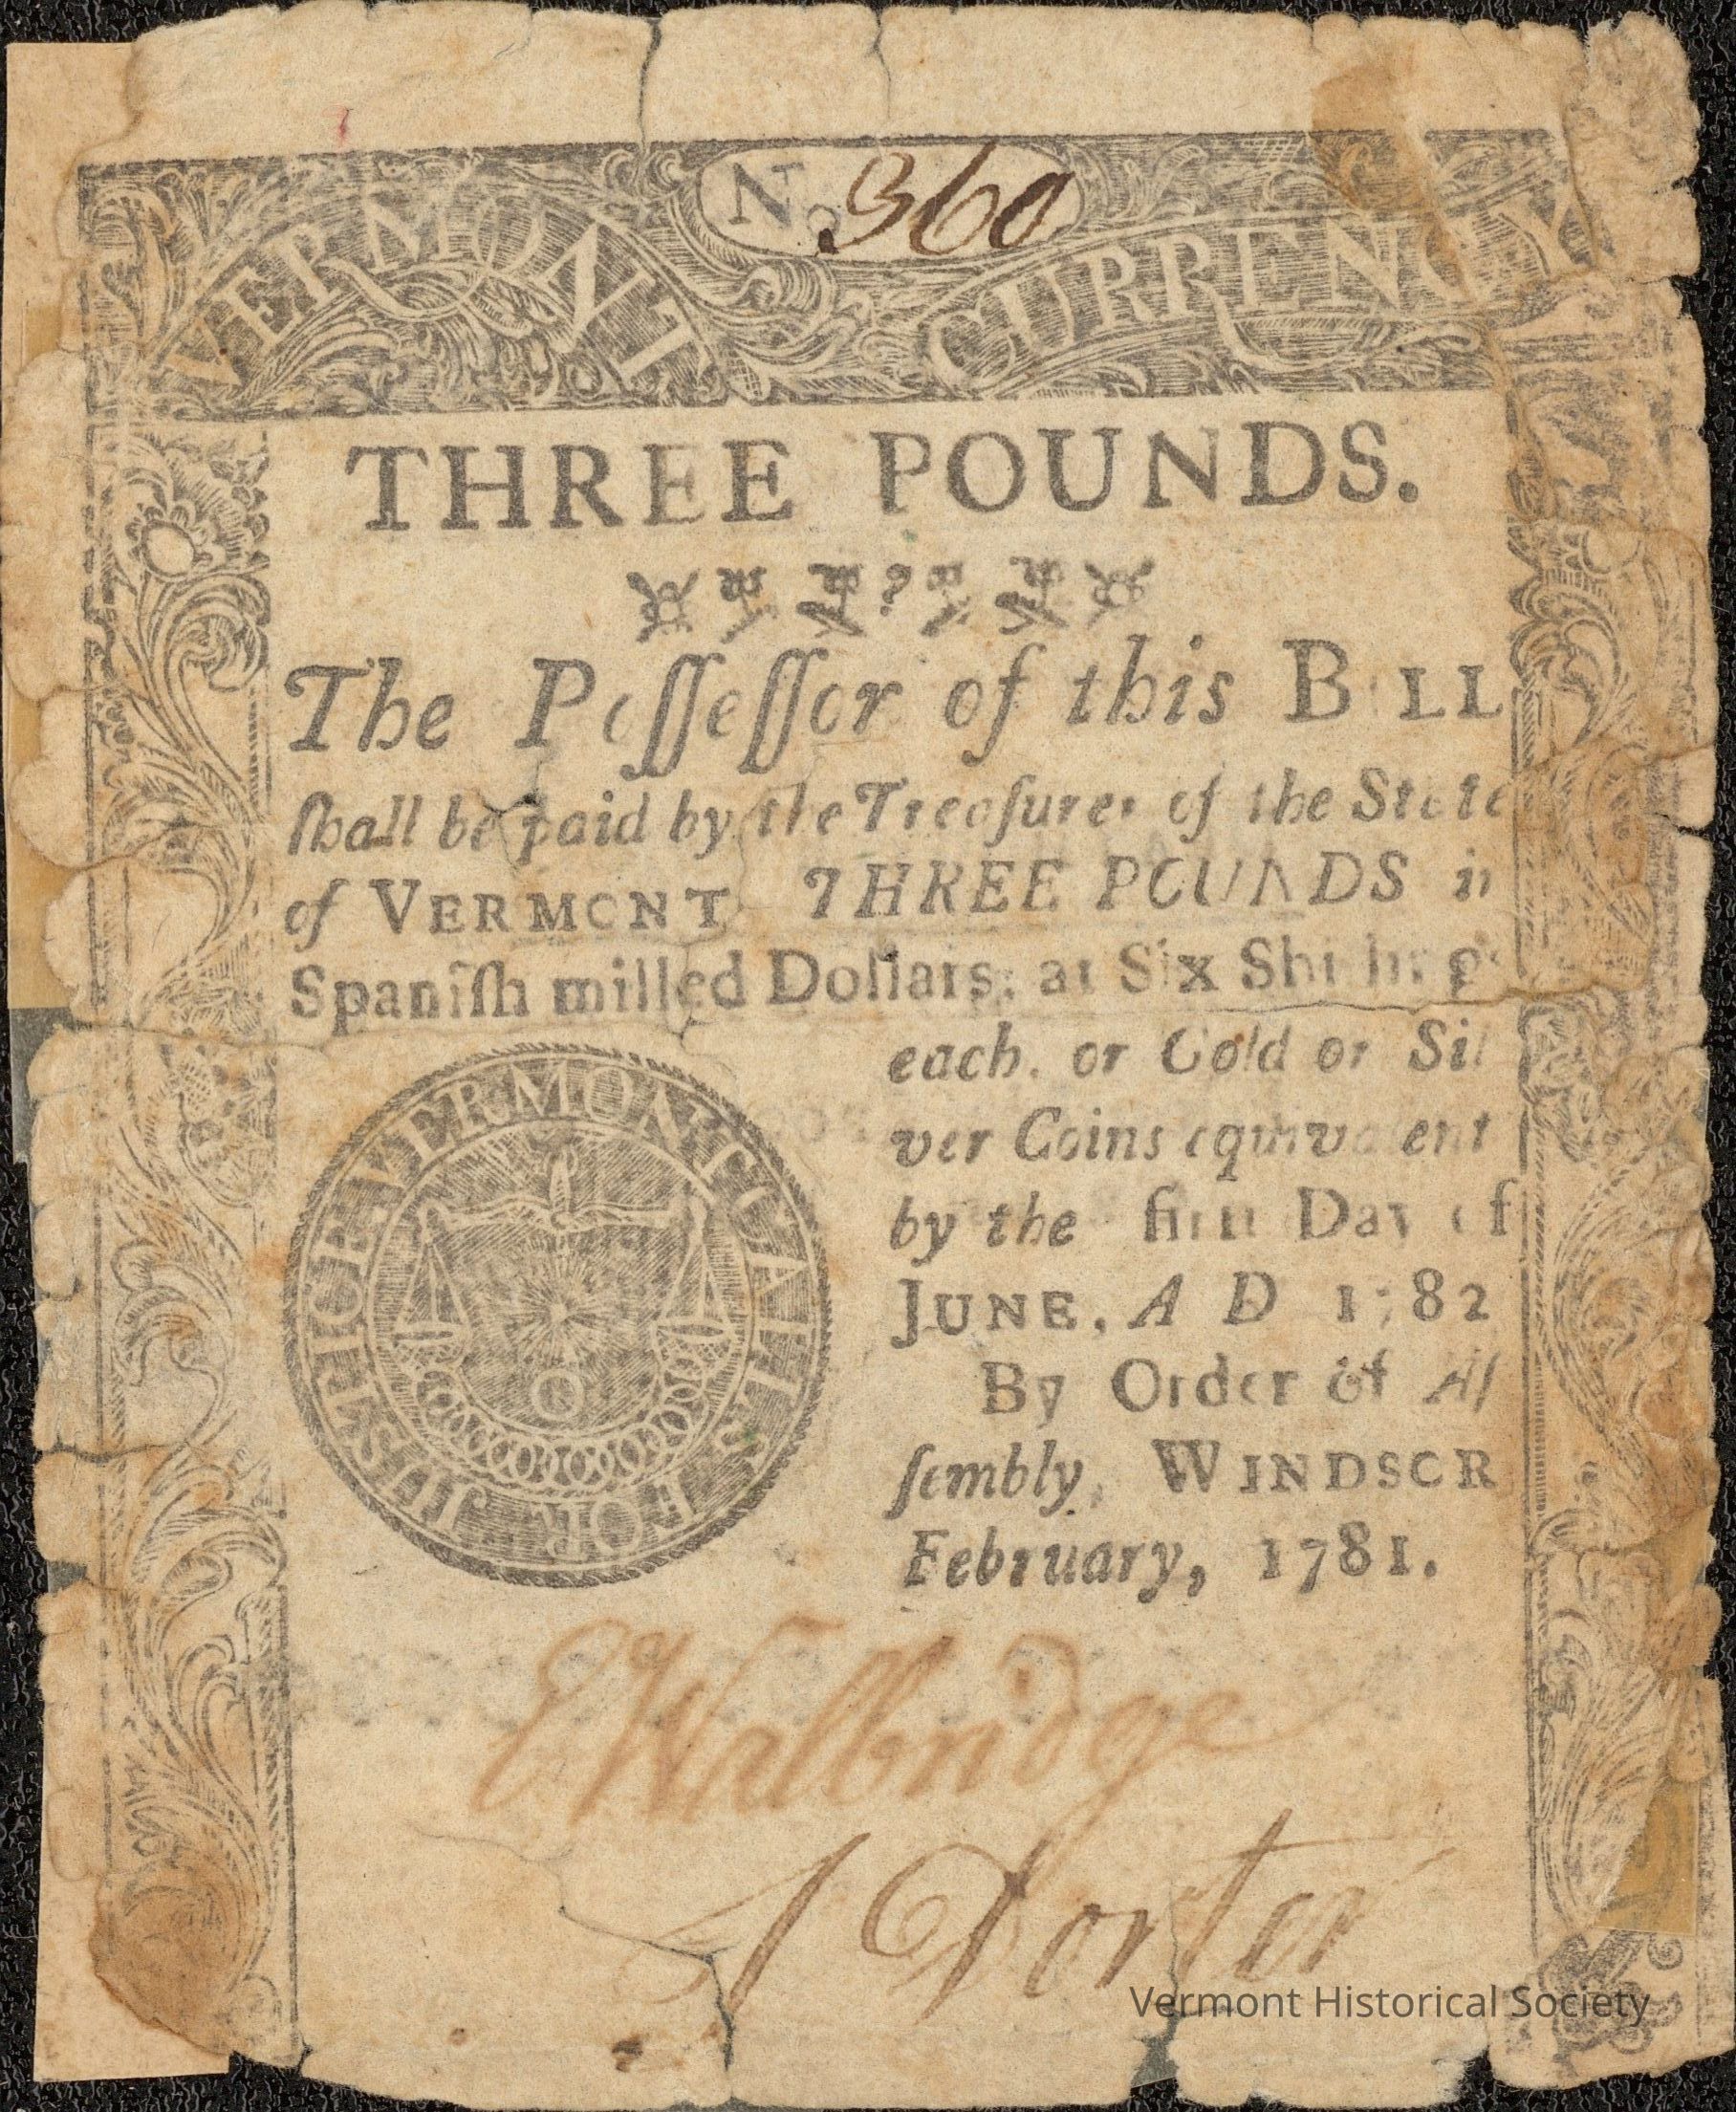 No 360
VERMONT CURRENCY
THREE POUNDS.
The Poſſeſſor of this BILL
ſhall be paid by the Treaſurer of the State
of VERMONT THREE POUNDS in
Spaniſh milled Dollars, at Six Shillings
each, or Gold or Sil
ver Coins equivalent
by the firſt Day of
JUNE, A D 1782
By Order of Aſ
ſembly, WINDSOR
February, 1781.
VERMONT CALLS FOR JUSTICE
E Walbridge
J Porter
Vermont Historical Society